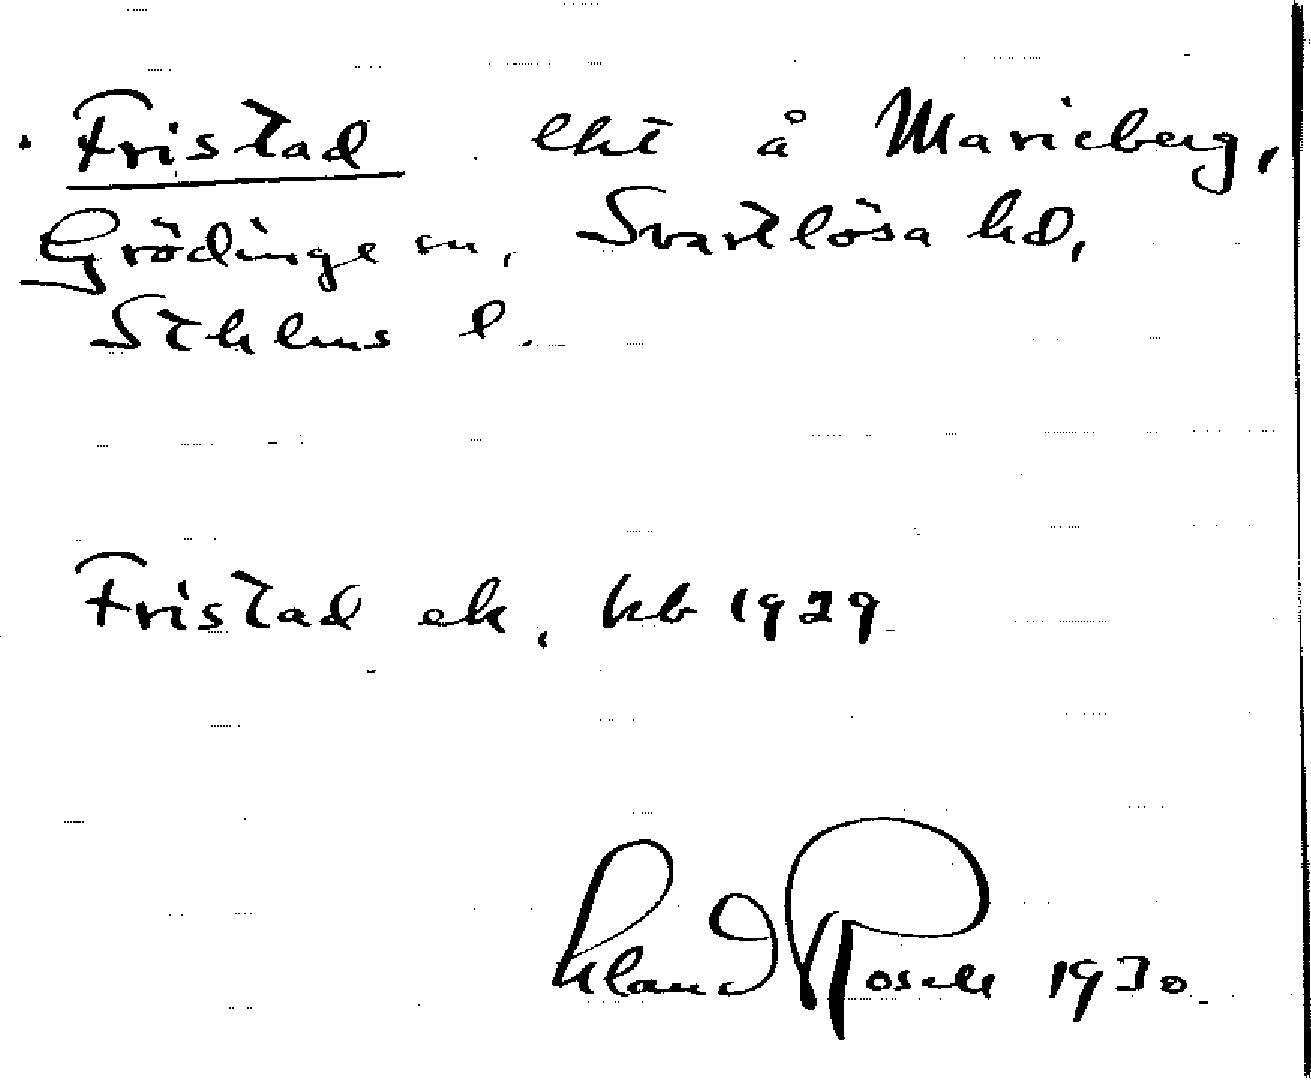 Fristad lht å Marieberg,
Grödinge sn, Svartlösa hd,
Sthlms l.
Fristad ek. kb 1929
1930